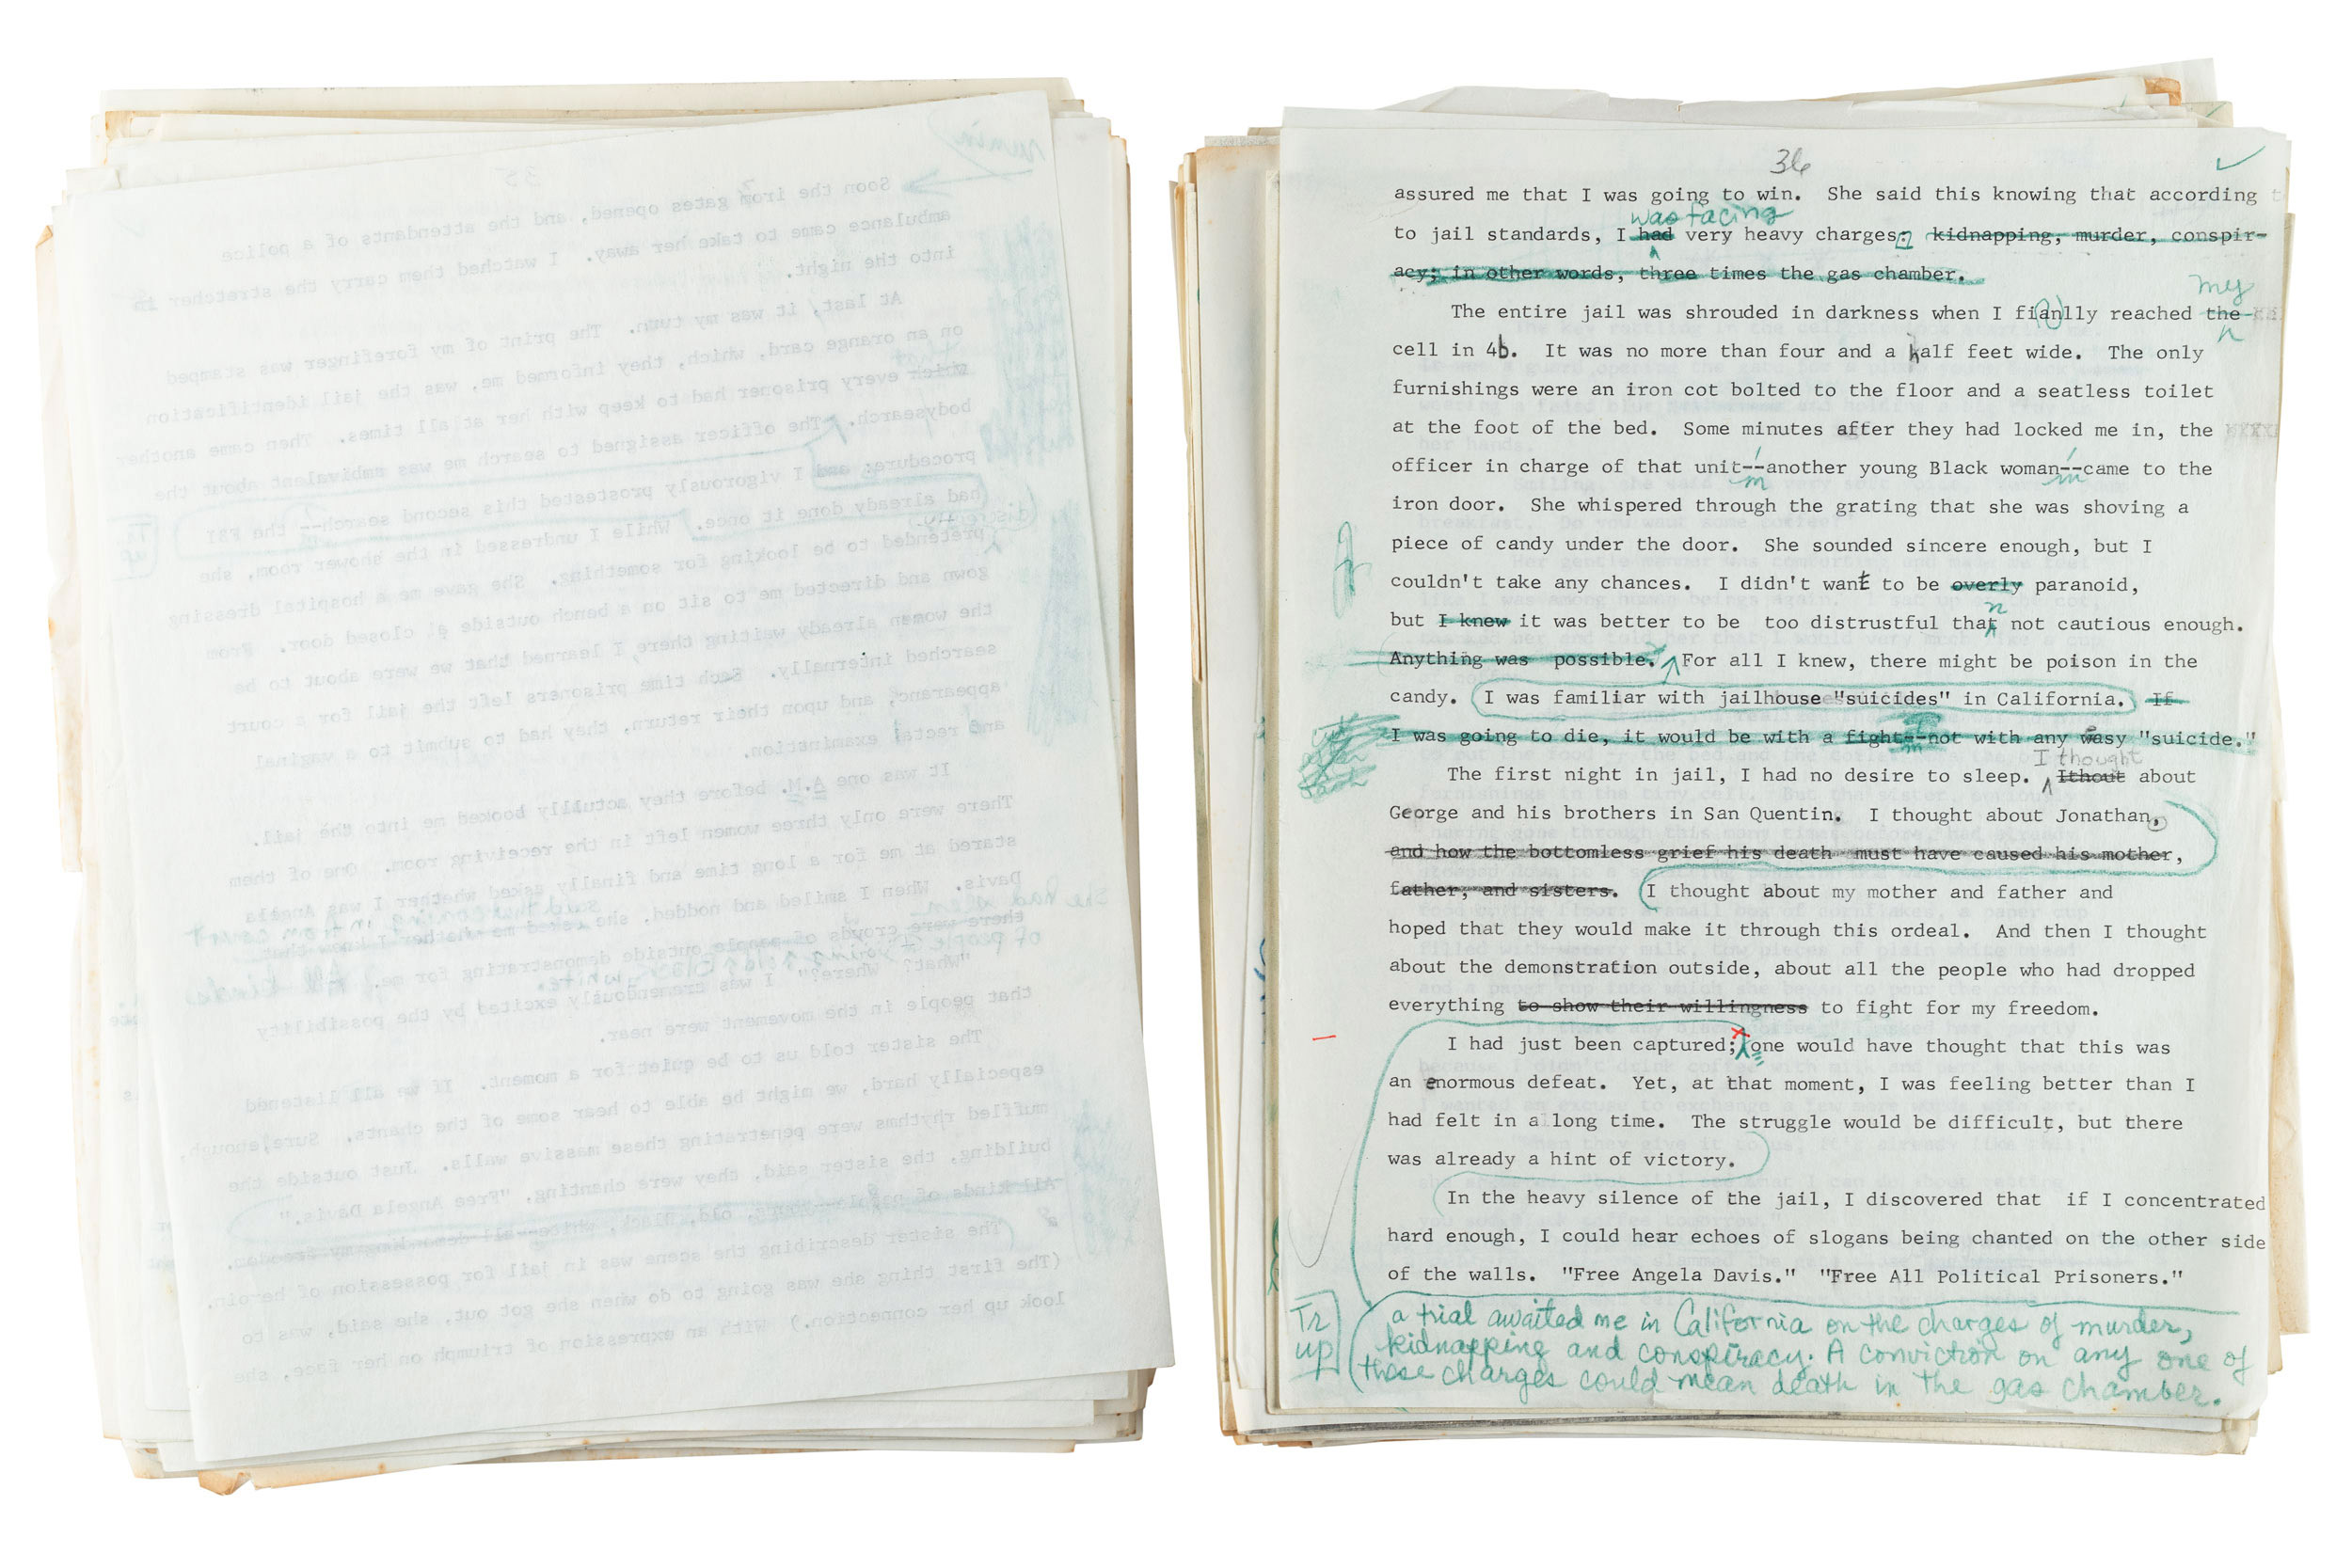 run in
35
Soon the iron gates opened, and the attendants of a police
ambulance came to take her away. I watched them carry the stretcher
into the night.
At last, it was my turn. The print of my forefinger was stamped
on an orange card, which, they informed me, was the jail identification
that
which every prisoner had to keep with her at all times. Then came another
bodysearch. The officer assigned to search me was ambivalent about the
procedure; and I vigorously prostested this second search--the FBI
Tr up
had already done it once. While I undressed in the shower room, she
pretended to be looking for something. She gave me a hospital dressing
gown and directed me to sit on a bench outside a closed door. From
the women already waiting there, I learned that we were about to be
searched internally. Each time prisoners left the jail for a court
appearance, and upon their return, they had to submit to a vaginal
and rectal examination.
It was one A.M. before they actually booked me into the jail.
There were only three women left in the receiving room. One of them
stared at me for a long time and finally asked whether I was Angela
Davis. When I smiled and nodded, she asked me whether I knew that
there were crowds of people outside demonstrating for me.
"What? Where?" I was tremendously excited by the possibility
that people in the movement were near.
The sister told us to be quiet for a moment. If we all listened
especially hard, we might be able to hear some of the chants. Sure enough,
muffled rhythms were penetrating these massive walls. Just outside the
building, the sister said, they were chanting, "Free Angela Davis."
All kinds of people--young, old, Black, white--all demanding my freedom.
The sister describing the scene was in jail for possession of heroin.
(The first thing she was going to do when she got out, she said, was to
look up her connection.) With an expression of triumph on her face, she
36
assured me that I was going to win. She said this knowing that according t
was facing
to jail standards, I had very heavy charges: kidnapping, murder, conspir-
acy; in other words, three times the gas chamber.
my
The entire jail was shrouded in darkness when I fianlly reached the
cell in 4b. It was no more than four and a half feet wide. The only
furnishings were an iron cot bolted to the floor and a seatless toilet
at the foot of the bed. Some minutes after they had locked me in, the
officer in charge of that unit--another young Black woman--came to the
iron door. She whispered through the grating that she was shoving a
piece of candy under the door. She sounded sincere enough, but I
couldn't take any chances. I didn't want to be overly paranoid,
n
but I knew it was better to be too distrustful that not cautious enough.
Anything was possible. For all I knew, there might be poison in the
candy. I was familiar with jailhouse "suicides" in California. If
I was going to die, it would be with a fight--not with any easy "suicide."
I thought
The first night in jail, I had no desire to sleep. Ithout about
George and his brothers in San Quentin. I thought about Jonathan,
and how the bottomless grief his death must have caused his mother,
father, and sisters. I thought about my mother and father and
hoped that they would make it through this ordeal. And then I thought
about the demonstration outside, about all the people who had dropped
everything to show their willingness to fight for my freedom.
I had just been captured; one would have thought that this was
an enormous defeat. Yet, at that moment, I was feeling better than I
had felt in a long time. The struggle would be difficult, but there
was already a hint of victory.
In the heavy silence of the jail, I discovered that if I concentrated
hard enough, I could hear echoes of slogans being chanted on the other side
of the walls. "Free Angela Davis." "Free All Political Prisoners."
Tr up
a trial awaited me in California on the charges of murder,
kidnapping and conspiracy. A conviction on any one of
these charges could mean death in the gas chamber.